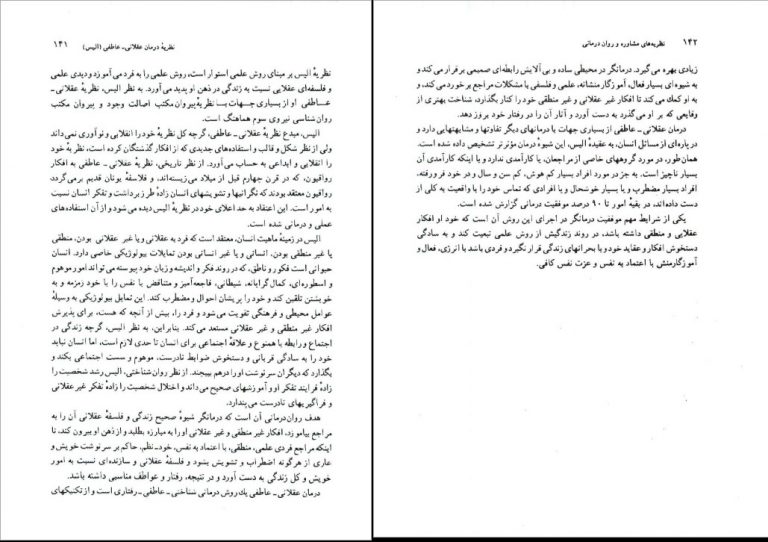 نظریهٔ درمان عقلانی ـ عاطفی (الیس) ۱۴۱
نظریهٔ الیس بر مبنای روش علمی استوار است، روش علمی را به فرد می‌آموزد و دیدی علمی
و فلسفه‌ای عقلایی نسبت به زندگی در ذهن او پدید می‌آورد. به نظر الیس، نظریهٔ عقلانی ـ
عـاطفی او از بسیاری جهـات بـا نظریهٔ پیروان مکتب اصالت وجود و پیروان مکتب
روان‌شناسی نیروی سوم هماهنگ است.
الیس، مبدع نظریهٔ عقلانی ـ عاطفی، گرچه کل نظریهٔ خود را انقلابی و نوآوری نمی‌داند
ولی از نظر شکل و قالب و استفاده‌های جدیدی که از افکار گذشتگان کرده است، نظریهٔ خود
را انقلابی و ابداعی به حساب می‌آورد. از نظر تاریخی، نظریهٔ عقلانی ـ عاطفی به افکار
رواقیون، که در قرن چهارم قبل از میلاد می‌زیسته‌اند، و فلاسفهٔ یونان قدیم برمی‌گردد،
رواقیون معتقد بودند که نگرانیها و تشویشهای انسان زادهٔ طرز برداشت و تفکر انسان نسبت
به امور است. این اعتقاد به حد اعلای خود در نظریهٔ الیس دیده می‌شود و از آن استفاده‌های
عملی و درمانی شده است.
الیس در زمینهٔ ماهیت انسان، معتقد است که فرد به عقلانی و یا غیر عقلانی بودن، منطقی
یا غیر منطقی بودن، انسانی و یا غیر انسانی بودن تمایلات بیولوژیکی خاصی دارد. انسان
حیوانی است فکور و ناطق، که در روند فکر و اندیشه و زبان خود پیوسته می‌تواند امور موهوم
و اسطوره‌ای، کمال‌گرایانه، شیطانی، فاجعه‌آمیز و متناقض با نفس را با خود زمزمه و به
خویشتن تلقین کند و خود را پریشان احوال و مضطرب کند. این تمایل بیولوژیکی به وسیلهٔ
عوامل محیطی و فرهنگی تقویت می‌شود و فرد را، بیش از آنچه که هست، برای پذیرش
افکار غیر منطقی و غیر عقلانی مستعد می‌کند. بنابراین، به نظر الیس، گرچه زندگی در
اجتماع و رابطه با همنوع و علاقهٔ اجتماعی برای انسان تا حدی لازم است، اما انسان نباید
خود را به سادگی قربانی و دستخوش ضوابط نادرست، موهوم و سست اجتماعی بکند و
بگذارد که دیگران سرنوشت او را درهم پیچند. از نظر روان‌شناختی، الیس رشد شخصیت را
زادهٔ فرایند تفکر او و آموزشهای صحیح می‌داند و اختلال شخصیت را زادهٔ تفکر غیر عقلانی
و فراگیریهای نادرست می‌پندارد.
هدف روان‌درمانی آن است که درمانگر شیوهٔ صحیح زندگی و فلسفهٔ عقلانی آن را به
مراجع بیاموزد، افکار غیر منطقی و غیر عقلانی او را به مبارزه بطلبد و از ذهن او بیرون کند، تا
اینکه مراجع فردی علمی، منطقی، با اعتماد به نفس، خود ـ نظم، حاکم بر سرنوشت خویش و
عاری از هرگونه اضطراب و تشویش بشود و فلسفهٔ عقلانی و سازنده‌ای نسبت به امور
خویش و کل زندگی به دست آورد و در نتیجه، رفتار و عواطف مناسبی داشته باشد.
درمان عقلانی ـ عاطفی یک روش درمانی شناختی ـ عاطفی ـ رفتاری است و از تکنیکهای
۱۴۲ نظریه‌های مشاوره و روان درمانی
زیادی بهره می‌گیرد. درمانگر در محیطی ساده و بی‌آلایش رابطه‌ای صمیمی برقرار می‌کند و
به شیوه‌ای بسیار فعال، آموزگارمنشانه، علمی و فلسفی با مشکلات مراجع برخورد می‌کند، و
به او کمک می‌کند تا افکار غیر عقلانی و غیر منطقی خود را کنار بگذارد، شناخت بهتری از
وقایعی که بر او می‌گذرد به دست آورد و آثار آن را در رفتار خود بروز دهد.
درمان عقلانی ـ عاطفی از بسیاری جهات با درمانهای دیگر تفاوتها و مشابهتهایی دارد و
در پاره‌ای از مسائل انسان، به عقیدهٔ الیس، این شیوهٔ درمان مؤثرتر تشخیص داده شده است.
همان‌طور، در مورد گروههای خاصی از مراجعان، یا کارآمدی ندارد و یا اینکه کارآمدی آن
بسیار ناچیز است. به جز در مورد افراد بسیار کم هوش، کم سن و سال و در خود فرورفته،
افراد بسیار مضطرب و یا بسیار خوشحال و یا افرادی که تماس خود را با واقعیت به کلی از
دست داده‌اند، در بقیهٔ امور تا ۹۰ درصد موفقیت درمانی گزارش شده است.
یکی از شرایط مهم موفقیت درمانگر در اجرای این روش آن است که خود او افکار
عقلایی و منطقی داشته باشد، در روند زندگیش از روش علمی تبعیت کند و به سادگی
دستخوش افکار و عقاید خود و یا بحرانهای زندگی قرار نگیرد و فردی باشد با انرژی، فعال و
آموزگارمنش با اعتماد به نفس و عزت نفس کافی.